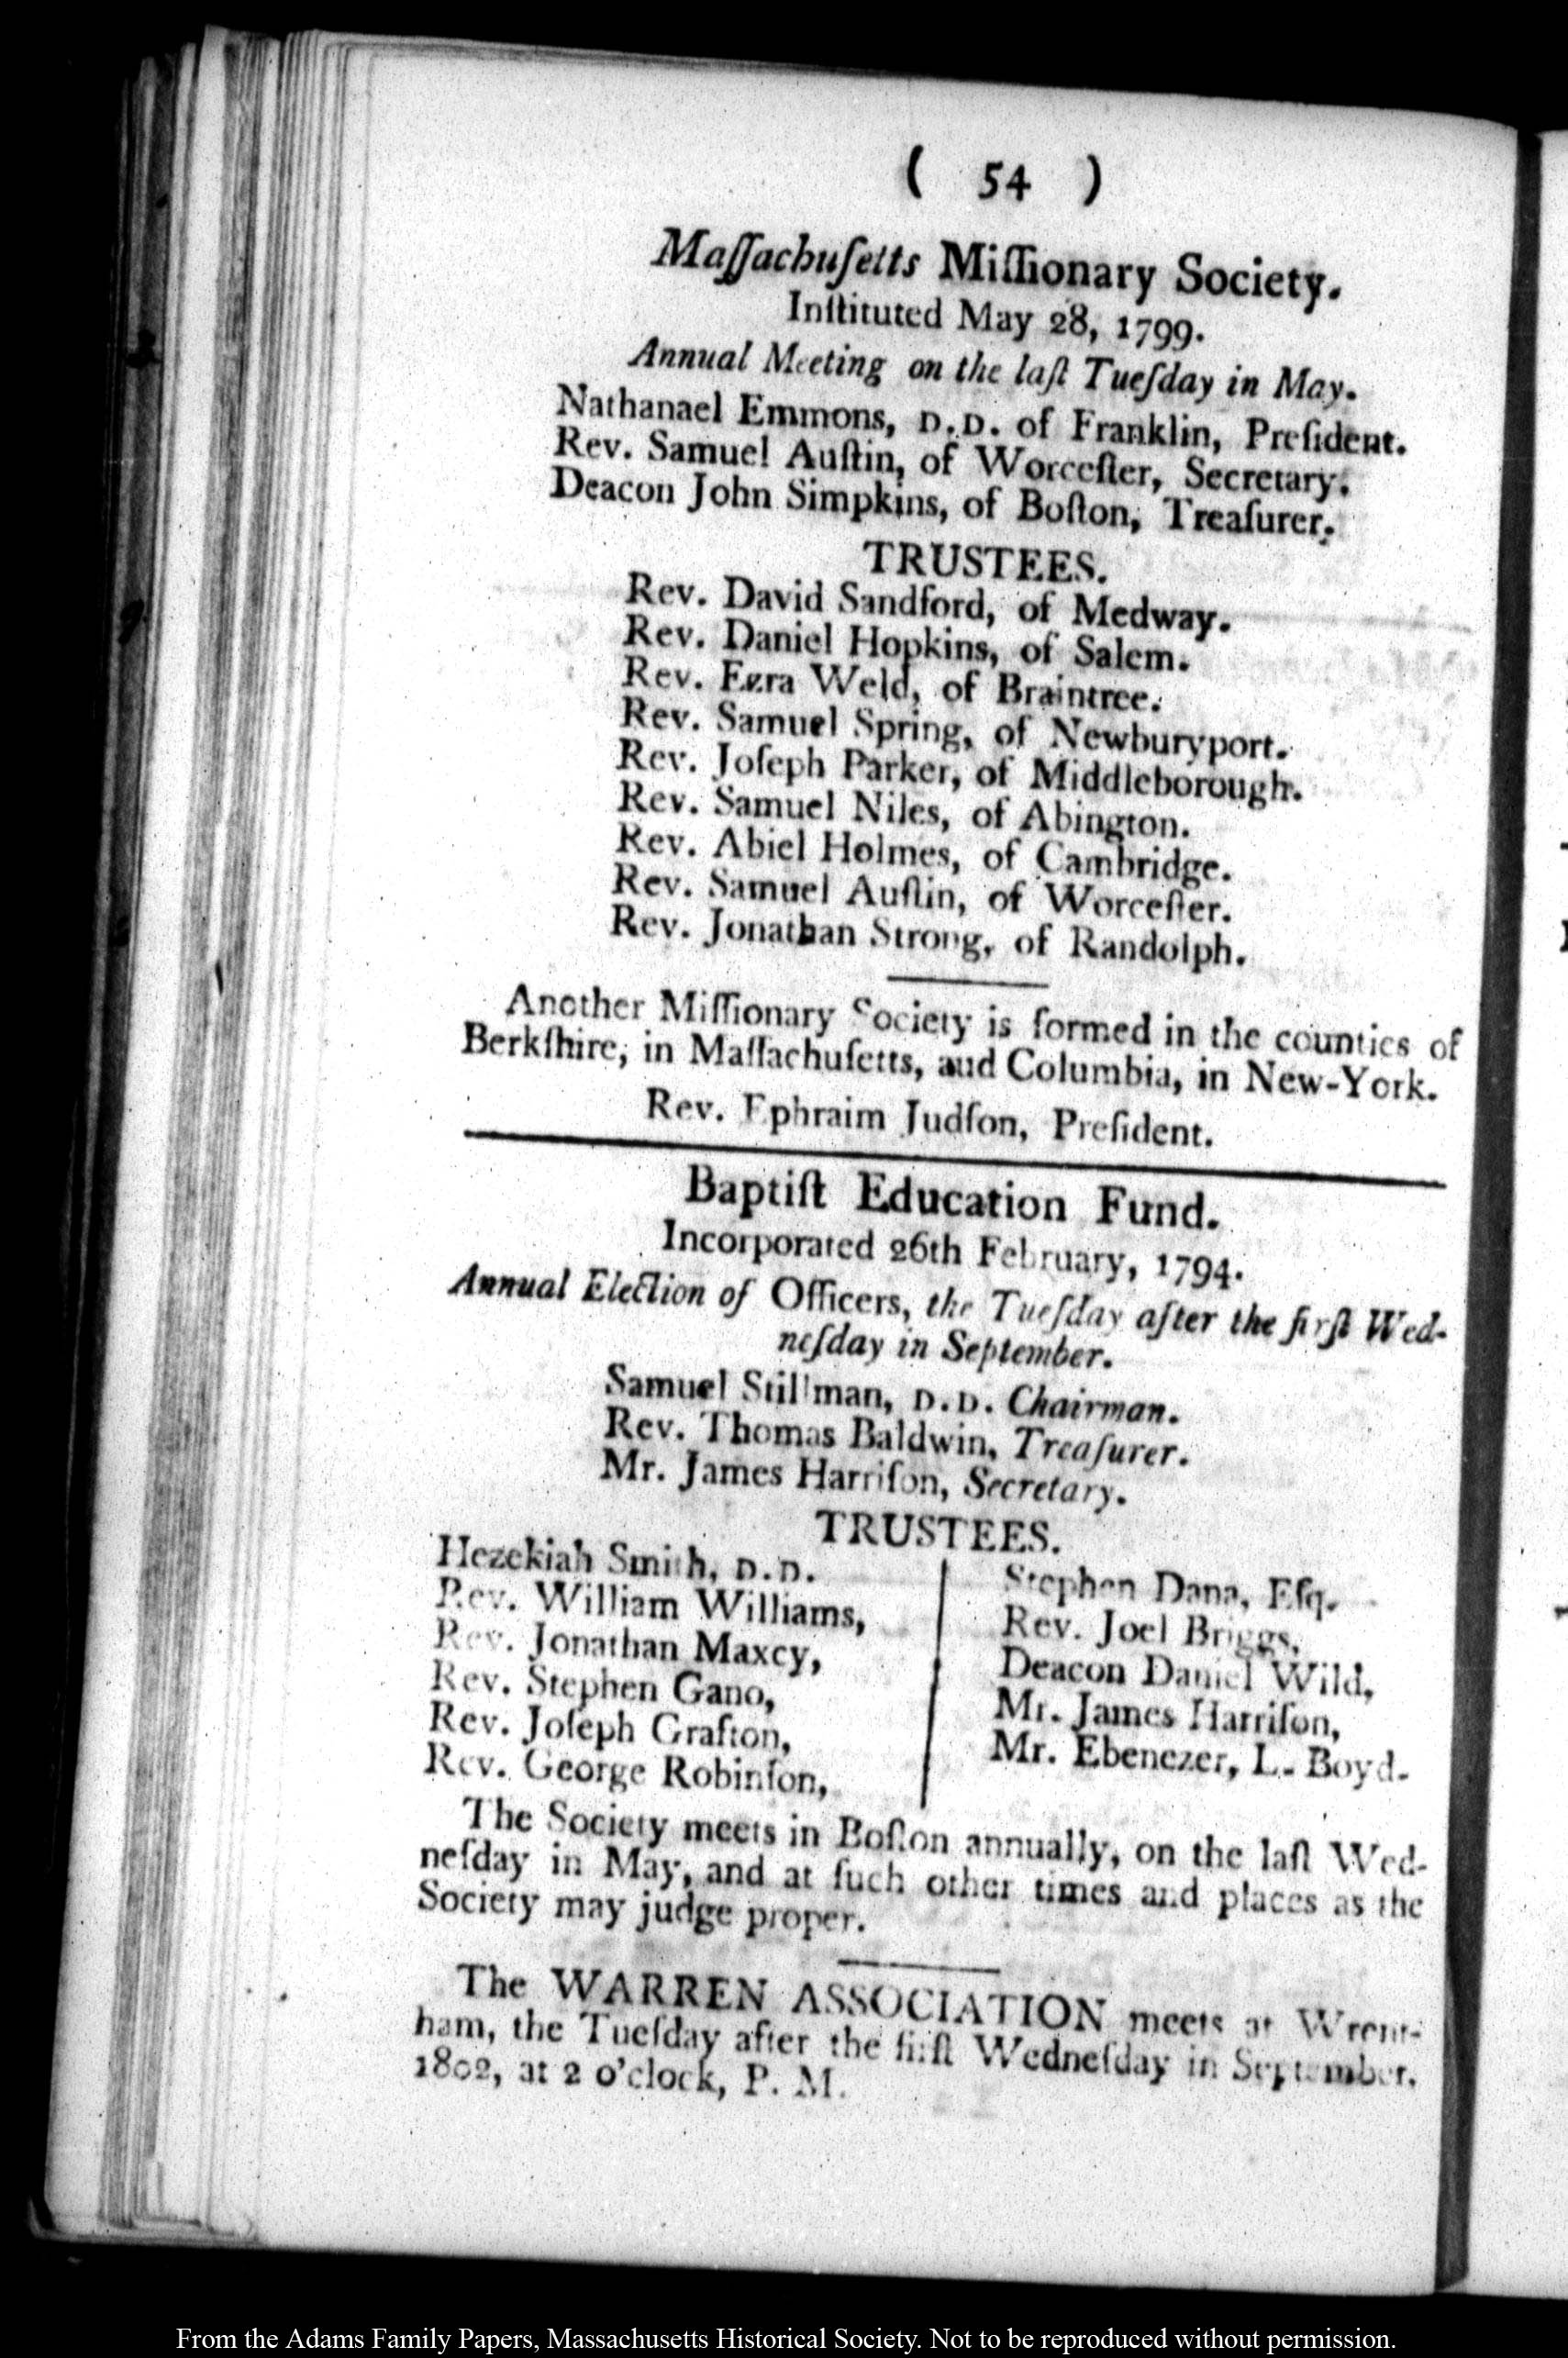 ( 54 )
Maſſachuſetts Miſſionary Society.
Inſtituted May 28, 1799.
Annual Meeting on the laſt Tueſday in May.
Nathanael Emmons, D.D. of Franklin, Preſident.
Rev. Samuel Auſtin, of Worceſter, Secretary.
Deacon John Simpkins, of Boſton, Treaſurer.
TRUSTEES.
Rev. David Sandford, of Medway.
Rev. Daniel Hopkins, of Salem.
Rev. Ezra Weld, of Braintree.
Rev. Samuel Spring, of Newburyport.
Rev. Joſeph Parker, of Middleborough.
Rev. Samuel Niles, of Abington.
Rev. Abiel Holmes, of Cambridge.
Rev. Samuel Auſtin, of Worceſter.
Rev. Jonathan Strong, of Randolph.
Another Miſſionary Society is formed in the counties of
Berkſhire, in Maſſachuſetts, aud Columbia, in New-York.
Rev. Ephraim Judſon, Preſident.
Baptiſt Education Fund.
Incorporated 26th February, 1794.
Annual Election of Officers, the Tueſday after the firſt Wed-
neſday in September.
Samuel Stillman, D.D. Chairman.
Rev. Thomas Baldwin, Treaſurer.
Mr. James Harriſon, Secretary.
TRUSTEES.
Hezekiah Smith, D.D.
Rev. William Williams,
Rev. Jonathan Maxcy,
Rev. Stephen Gano,
Rev. Joſeph Grafton,
Rev. George Robinſon,
Stephen Dana, Eſq.
Rev. Joel Briggs,
Deacon Daniel Wild,
Mr. James Harriſon,
Mr. Ebenezer, L. Boyd.
The Society meets in Boſton annually, on the laſt Wed-
neſday in May, and at ſuch other times and places as the
Society may judge proper.
The WARREN ASSOCIATION meets at Wrent-
ham, the Tueſday after the firſt Wedneſday in September.
1802, at 2 o'clock, P. M.
From the Adams Family Papers, Massachusetts Historical Society. Not to be reproduced without permission.